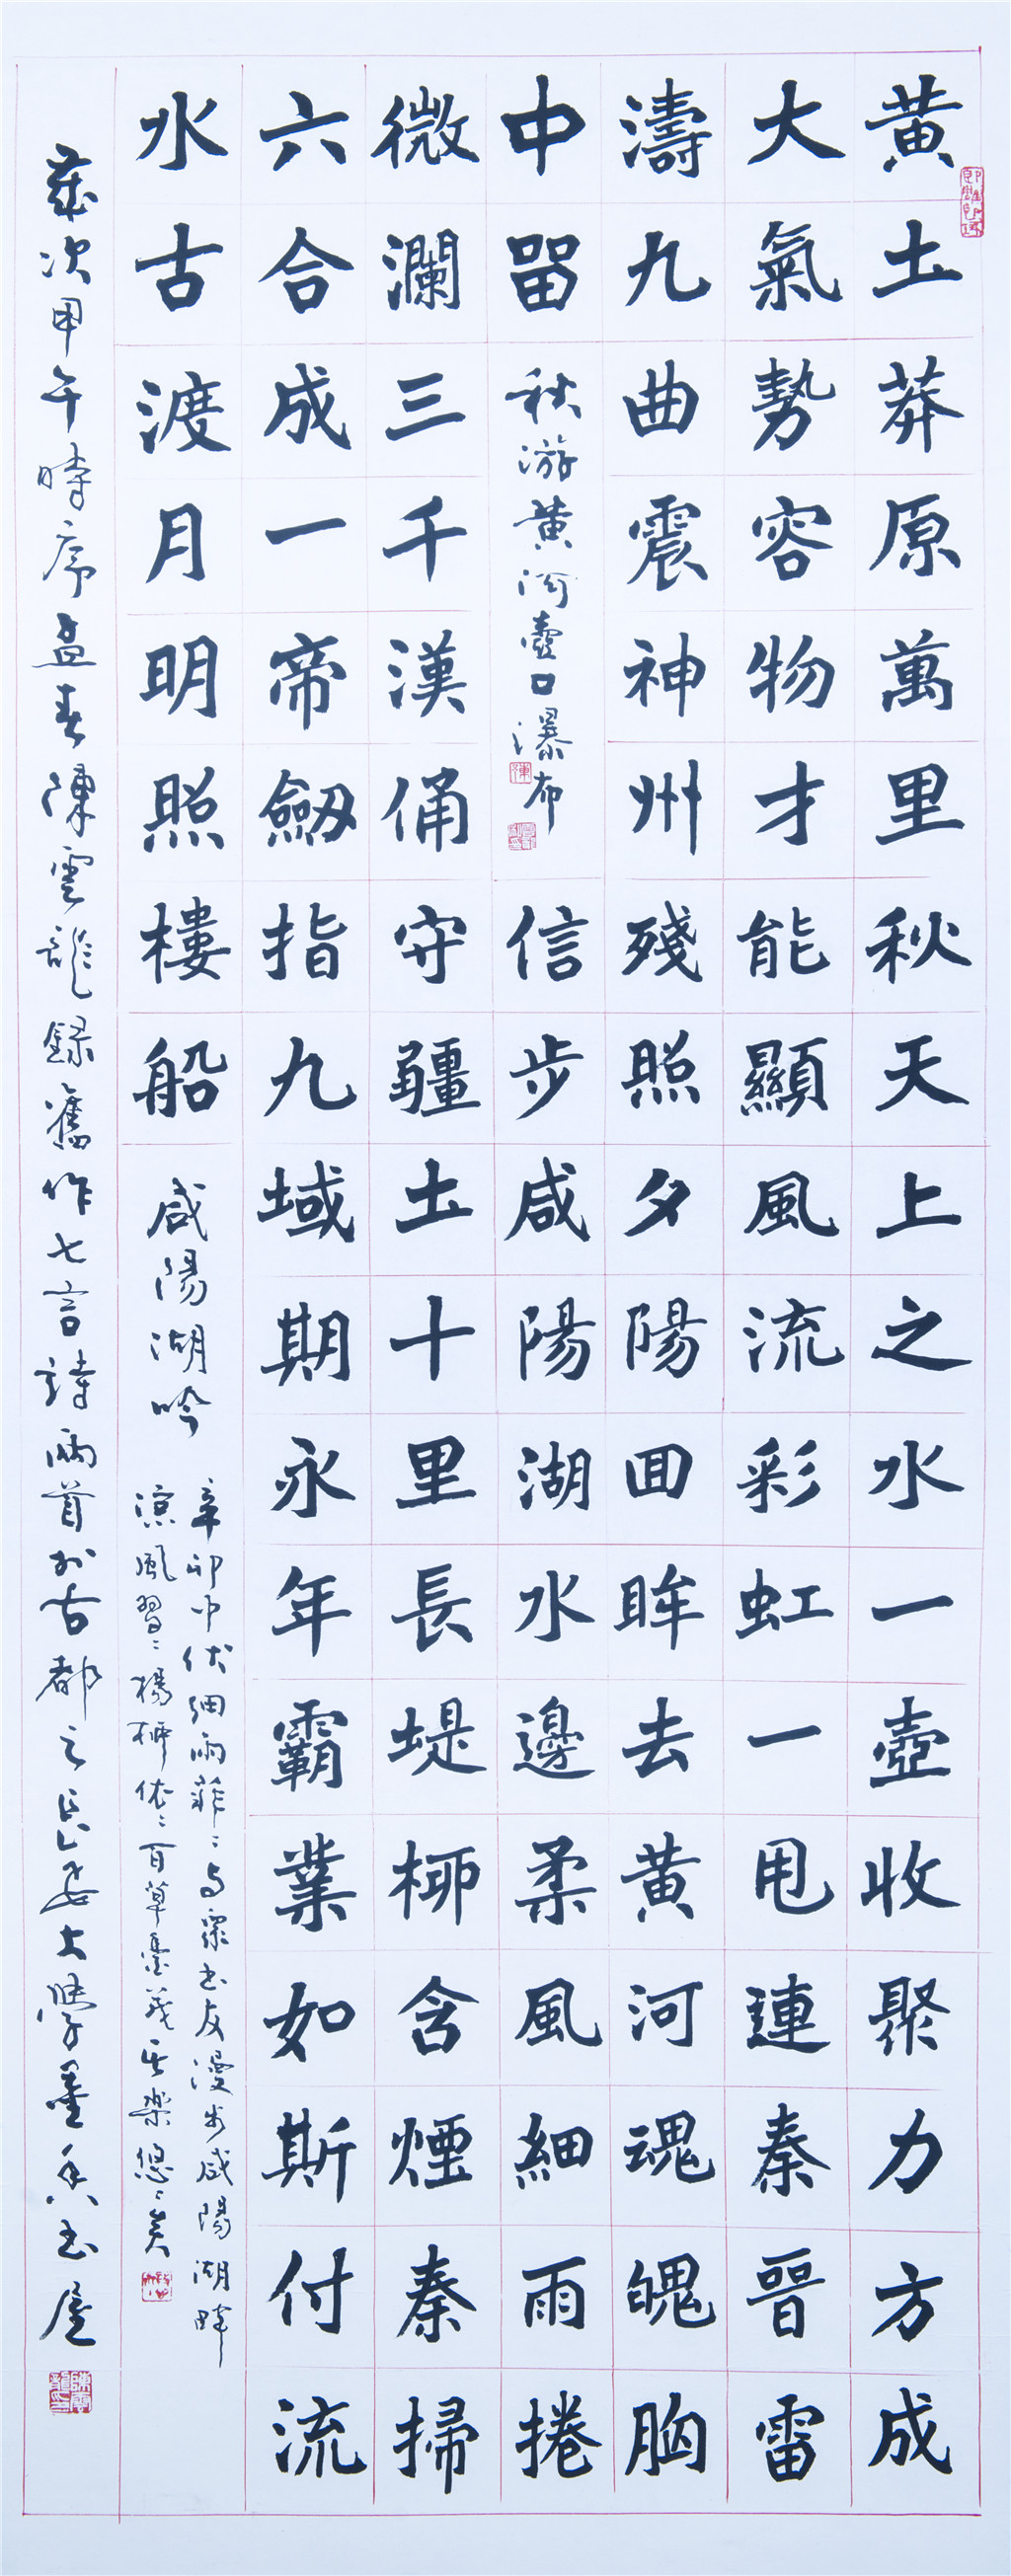 黄土莽原萬里秋天上之水一壺收聚力方成
大氣勢容物才能顯風流彩虹一甩連秦晉雷
濤九曲震神州殘照夕陽回眸去黄河魂魄胸
中留秋游黄河壺口瀑布信步咸陽湖水邊柔風細雨捲
微瀾三千漢俑守疆土十里長堤柳含煙秦掃
六合成一帝劍指九域期永年霸業如斯付流
水古渡月明照樓船咸陽湖吟
辛卯中伏細雨菲菲与眾書友漫步咸陽湖畔
涼風習習楊柳依依百草蔓茂其樂悠悠矣
歲次甲午時序孟春陳雲龍録舊作七言詩兩首於古都之長安大學墨香書屋